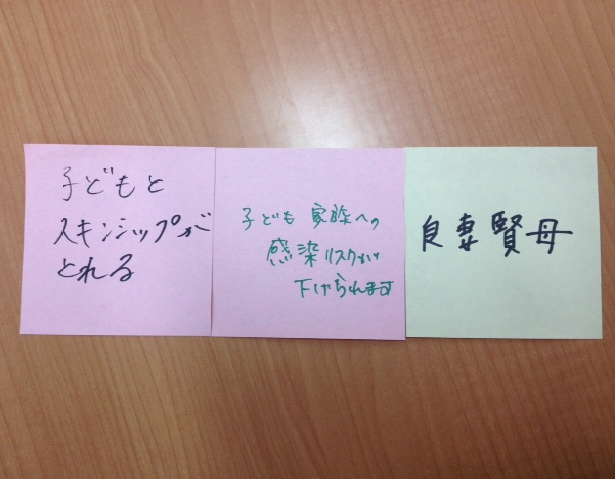 子どもと
スキンシップが
とれる
子ども 家族への
感染リスクが
下げられます
良妻賢母